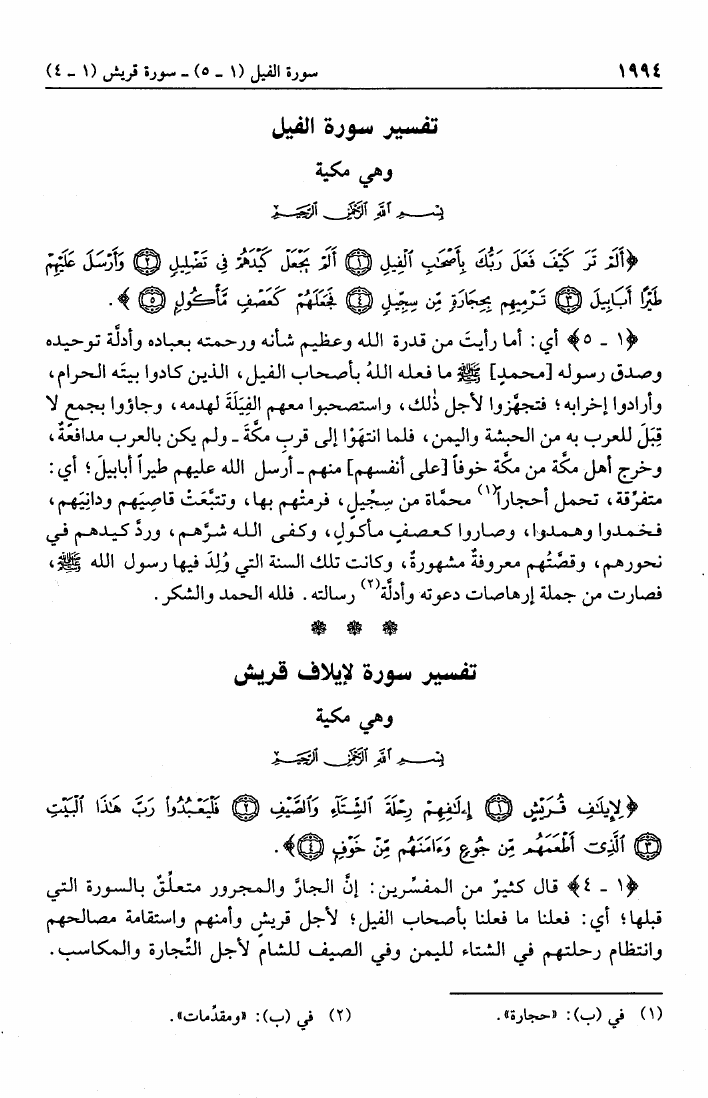 ١٩٩٤ سورة الفيل (١ - ٥) - سورة قريش (١ - ٤)
تفسير سورة الفيل
وهي مكية
بِسْمِ اللَّهِ الرَّحْمَٰنِ الرَّحِيمِ
﴿أَلَمْ تَرَ كَيْفَ فَعَلَ رَبُّكَ بِأَصْحَٰبِ ٱلْفِيلِ ١ أَلَمْ يَجْعَلْ كَيْدَهُمْ فِى تَضْلِيلٍ ٢ وَأَرْسَلَ عَلَيْهِمْ
طَيْرًا أَبَابِيلَ ٣ تَرْمِيهِم بِحِجَارَةٍ مِّن سِجِّيلٍ ٤ فَجَعَلَهُمْ كَعَصْفٍ مَّأْكُولٍ ٥ ﴾.
﴿١ - ٥﴾ أي: أما رأيتَ من قدرة الله وعظيم شأنه ورحمته بعباده وأدلَّة توحيده
وصدق رسوله [محمدٍ] ﷺ ما فعله اللهُ بأصحاب الفيل، الذين كادوا بيتَه الحرام،
وأرادوا إخرابه؛ فتجهَّزوا لأجل ذٰلك، واستصحبوا معهم الفِيَلَةَ لهدمه، وجاؤوا بجمع لا
قِبَلَ للعرب به من الحبشة واليمن، فلما انتهَوْا إلى قربِ مكَّةَ - ولم يكن بالعرب مدافعةٌ،
وخرج أهل مكَّة من مكَّة خوفاً [على أنفسهم] منهم - أرسل الله عليهم طيراً أبابيلَ؛ أي:
متفرِّقة، تحمل أحجاراً(١) محمَّاة من سِجِّيلٍ، فرمتْهم بها، وتتبَّعَتْ قاصِيَهم ودانِيَهم،
فخمدوا وهمدوا، وصاروا كعصفٍ مأكولٍ، وكفى الله شرَّهم، وردَّ كيدهم في
نحورهم، وقصَّتُهم معروفةٌ مشهورةٌ، وكانت تلك السنة التي وُلِدَ فيها رسول الله ﷺ،
فصارت من جملة إرهاصات دعوته وأدلَّة(٢) رسالته. فلله الحمد والشكر.
* * *
تفسير سورة لإيلاف قريش
وهي مكية
بِسْمِ اللَّهِ الرَّحْمَٰنِ الرَّحِيمِ
﴿لِإِيلَٰفِ قُرَيْشٍ ١ إِۦلَٰفِهِمْ رِحْلَةَ ٱلشِّتَآءِ وَٱلصَّيْفِ ٢ فَلْيَعْبُدُوا۟ رَبَّ هَٰذَا ٱلْبَيْتِ
٣ ٱلَّذِىٓ أَطْعَمَهُم مِّن جُوعٍ وَءَامَنَهُم مِّنْ خَوْفٍۭ ٤ ﴾.
﴿١ - ٤﴾ قال كثيرٌ من المفسِّرين: إنَّ الجارَّ والمجرور متعلِّقٌ بالسورة التي
قبلها؛ أي: فعلنا ما فعلنا بأصحاب الفيل؛ لأجل قريشٍ وأمنهم واستقامة مصالحهم
وانتظام رحلتهم في الشتاء لليمن وفي الصيف للشام لأجل التِّجارة والمكاسب.
(١) في (ب): «حجارة». (٢) في (ب): «ومقدِّمات».